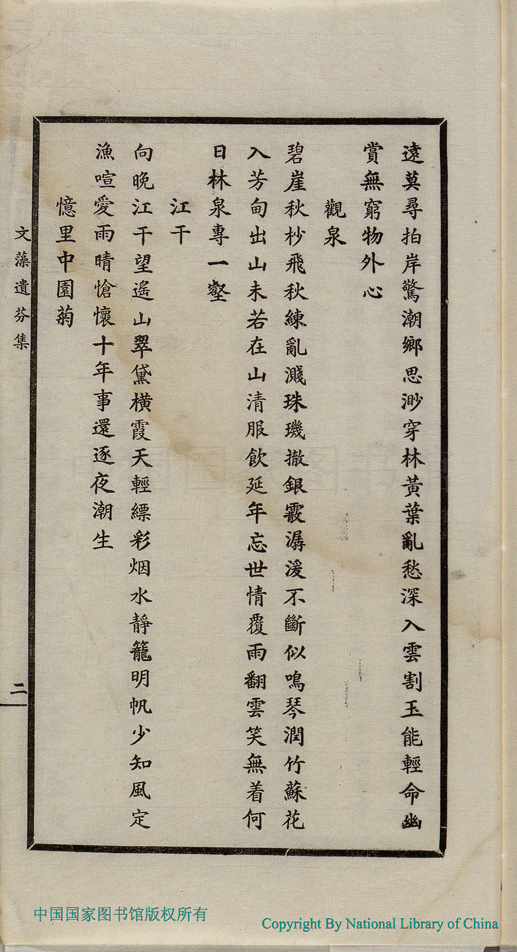 遠莫尋拍岸驚潮鄉思渺穿林黃葉亂愁深入雲割玉能輕命幽
賞無窮物外心
觀泉
碧崖秋杪飛秋練亂濺珠璣撤銀霰潺湲不斷似鳴琴潤竹蘇花
入芳甸出山未若在山清服飲延年忘世情覆雨翻雲笑無着何
日林泉專一壑
江干
向晚江干望遙山翠黛橫霞天輕縹彩烟水靜籠明帆少知風定
漁喧愛雨晴愴懷十年事還逐夜潮生
憶里中園菊
文藻遺芬集
二
中国国家图书馆版权所有
Copyright By National Library of China